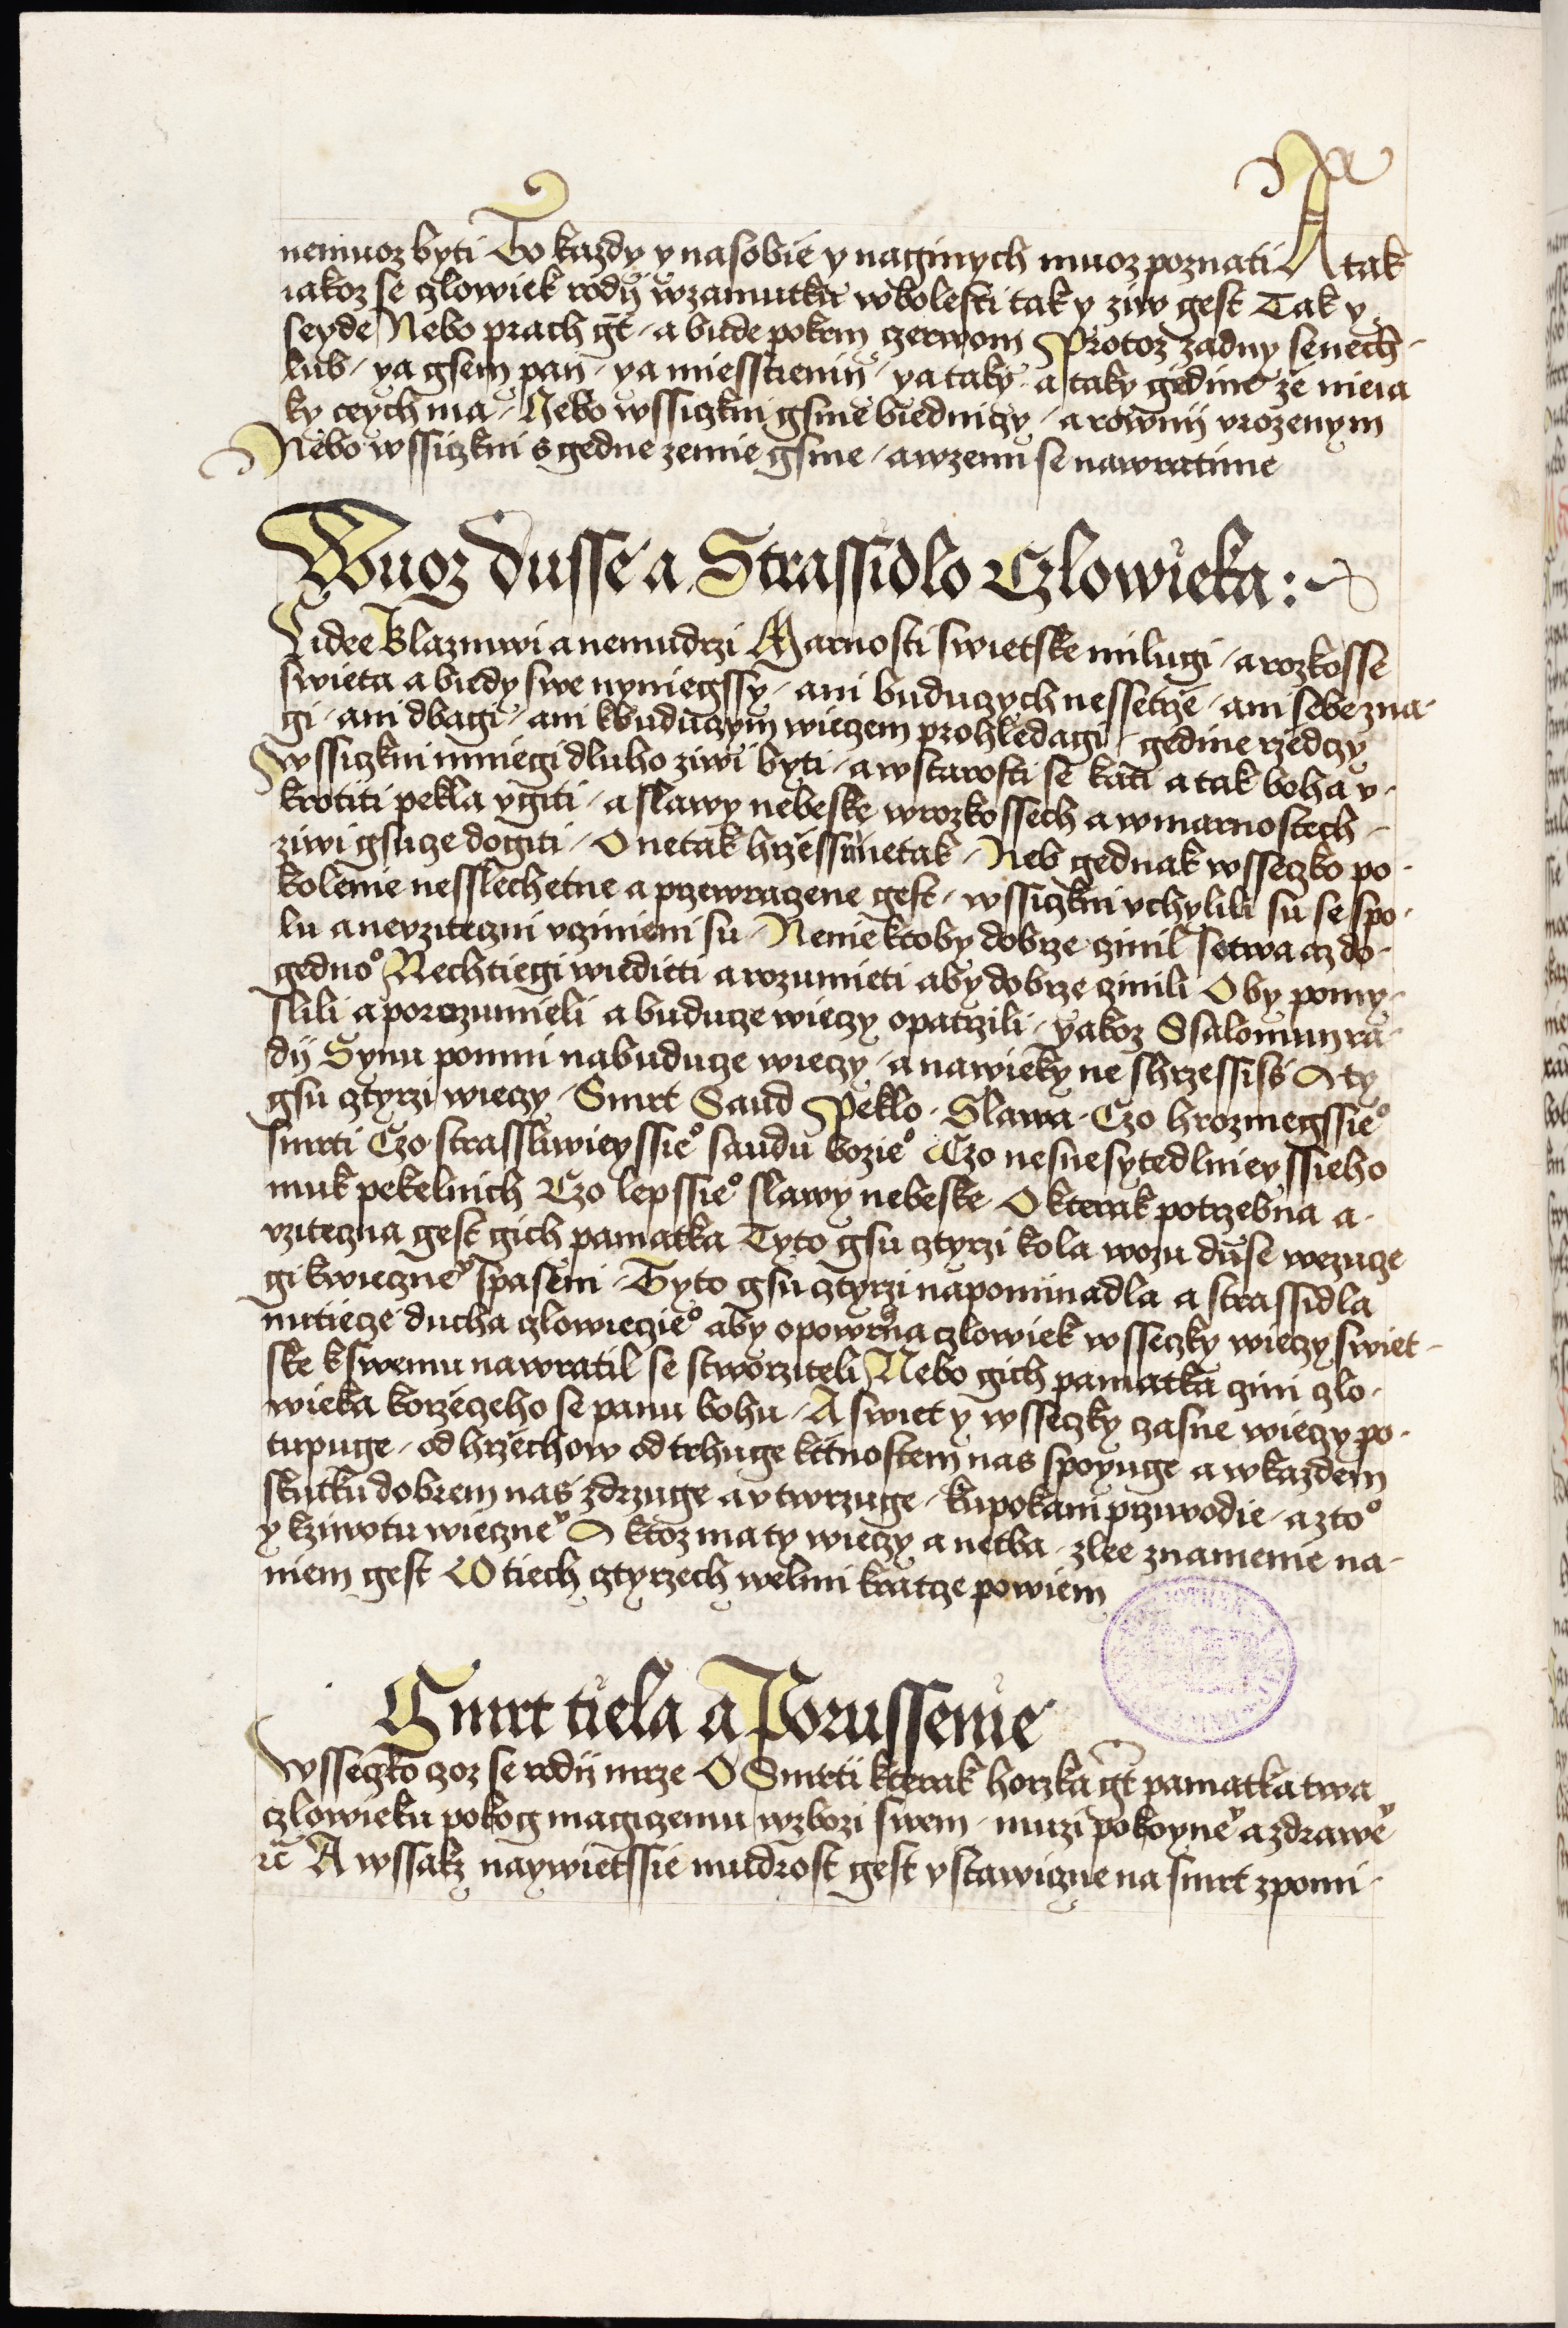 nemuoz byti To kazdy y nasobie y naginych muoz poznati A tak
iakoz se czlowiek rodij wzamutku wbolesti tak y ziw gest Tak y
seyde Nebo prach gt a bude pokrm czerwom Protoz zadny senech
lub ya gsem pan ya miesstienin ya taky a taky gedine ze nieia
ky ceych ma Nebo wssiczkni gsme biednicy a rowny vrozenym
Nebo wssiczkni s gedne zemie gsme awzemi se nawratime
Wuoz dusse a Strassidlo Czlowieka :
Lidee blazniwi a nemudrzi Marnosti swietske milugi a rozkosse
swieta a biedy swe nyniegssy ani buduczych nessetrze ani sebe zna
gi ani dbagi ani kbuduczym wieczem prohledagi gedine rzedczy
wssiczkni mniegi dluho ziwi byti a wstarosti se kati a tak boha v
krotiti pekla vgiti a slawy nebeske wrozkossech a wmarnostech
ziwi gsucze dogiti O netak hrzessnie tak Neb gednak wsseczko po
kolenie nesslechetne a przewraczene gest wssiczkni vchylili su se spo
lu a nevziteczni vczinieni su Nenie ktoby dobrze czinil sotwa az do
gednoº Nechtiegi wiedieti a rozumieti aby dobrze czinili O by pomy
slili a porozumieli a buducze wieczy opatrzili yakoz Ssalomun ra
dij Synu pomni nabuducze wieczy a nawieky ne shrzessiss A ty
gsu cztyrzi wieczy Smrt Saud Peklo Slawa Czo hrozniegssieº
smrti Czo strassliwieyssieº saudu bozieº Czo nesnesytedlnieyssieho
muk pekelnich Czo lepssieº slawy nebeske O kterak potrzebna a
vziteczna gest gich pamatka Tyto gsu cztyrzi kola wozu duse wezucze
gi kwiecznev spaseni Tyto gsu cztyrzi napominadla a strassidla
nutiecze ducha czlowieczieº aby opowrha czlowiek wsseczky wieczy swiet
ske kswemu nawratil se stworziteli Nebo gich pamatka czini czlo
wieka korzeczeho se panu bohu A swiet y wsseczky czasne wieczy po
tupuge od hrziechow odtrhuge kctnostem nas spoyuge a wkazdem
skutku dobrem nas zdrzuge a vtwrzuge kupokani przywodie a ztoº
y kziwotu wiecznev A ktoz ma ty wieczy a netba zlee znamenie na
niem gest O tiech cztyrzech welmi kratcze powiem
Smrt tiela a Porussenie
Wsseczko czoz se rodij mrze O Smrti kterak horzka gt pamatka twa
czlowieku pokog magiczemu wzbozi swem muzi pokoynev a zdrawev
rc A wssak naywietssie mudrost gest vstawiczne na smrt zpomi